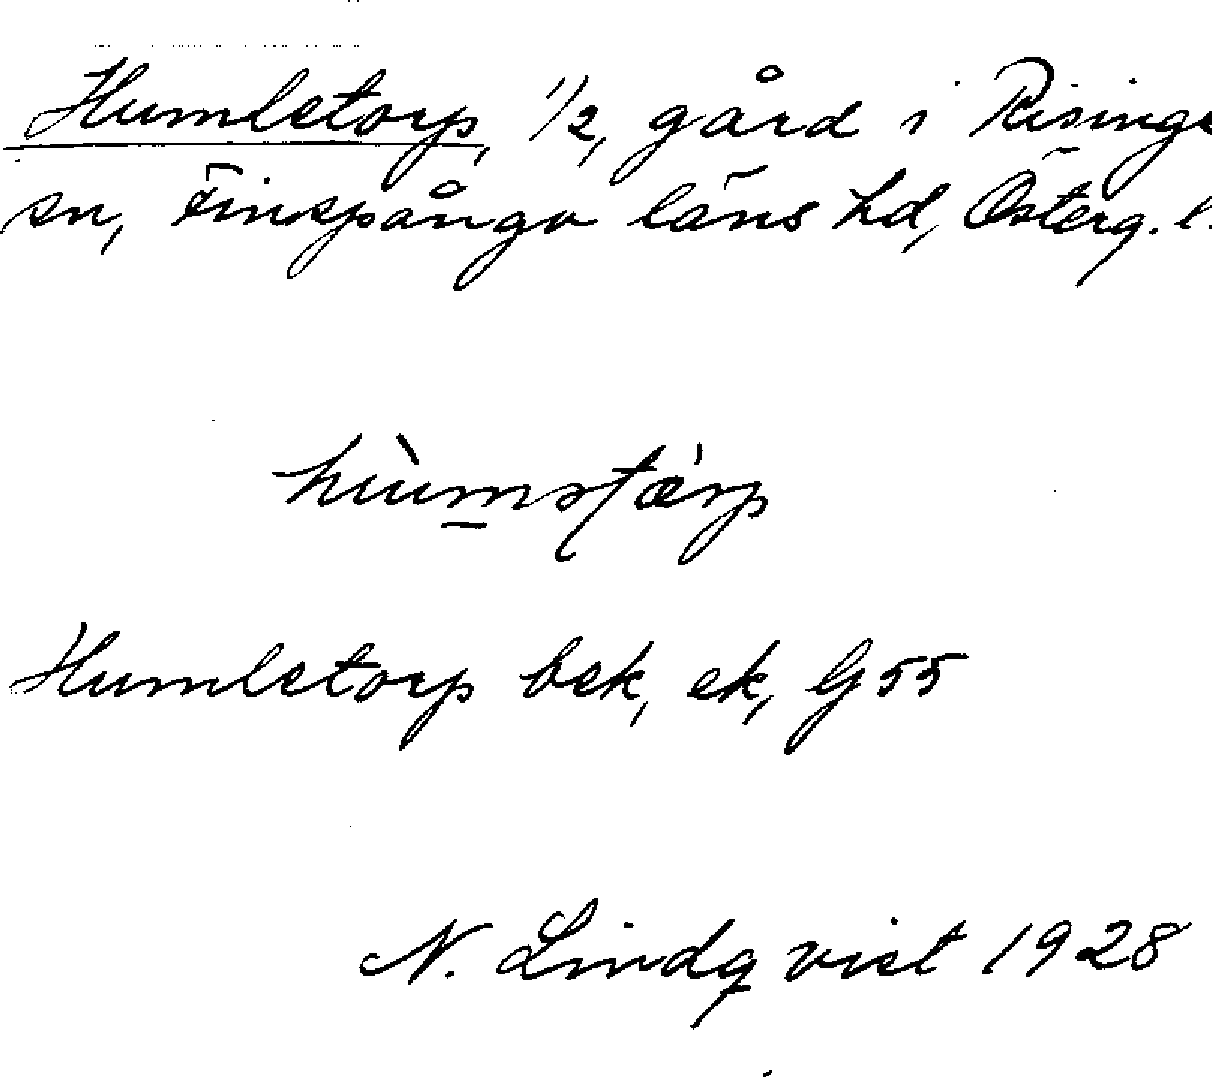 Humletorp, 1/2, gård i Risinge
sn, Finspånga läns hd, Österg. l.
Humletorp bek, ek, G55
N. Lindqvist 1928